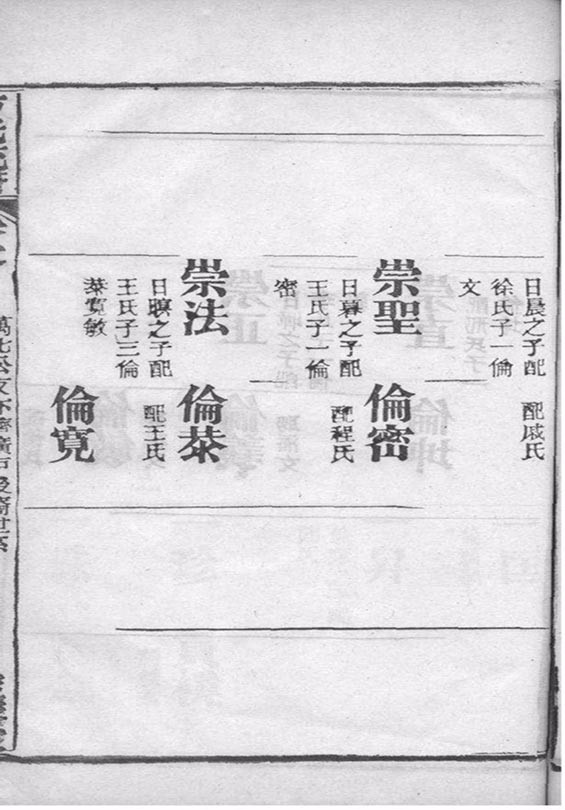 日晨之子配
徐氏子一倫
文
配戚氏
崇聖
日暮之子配
王氏子一倫
密
倫密
配程氏
崇法
日暝之子配
王氏子三倫
恭寬敏
倫恭
配王氏
倫寬